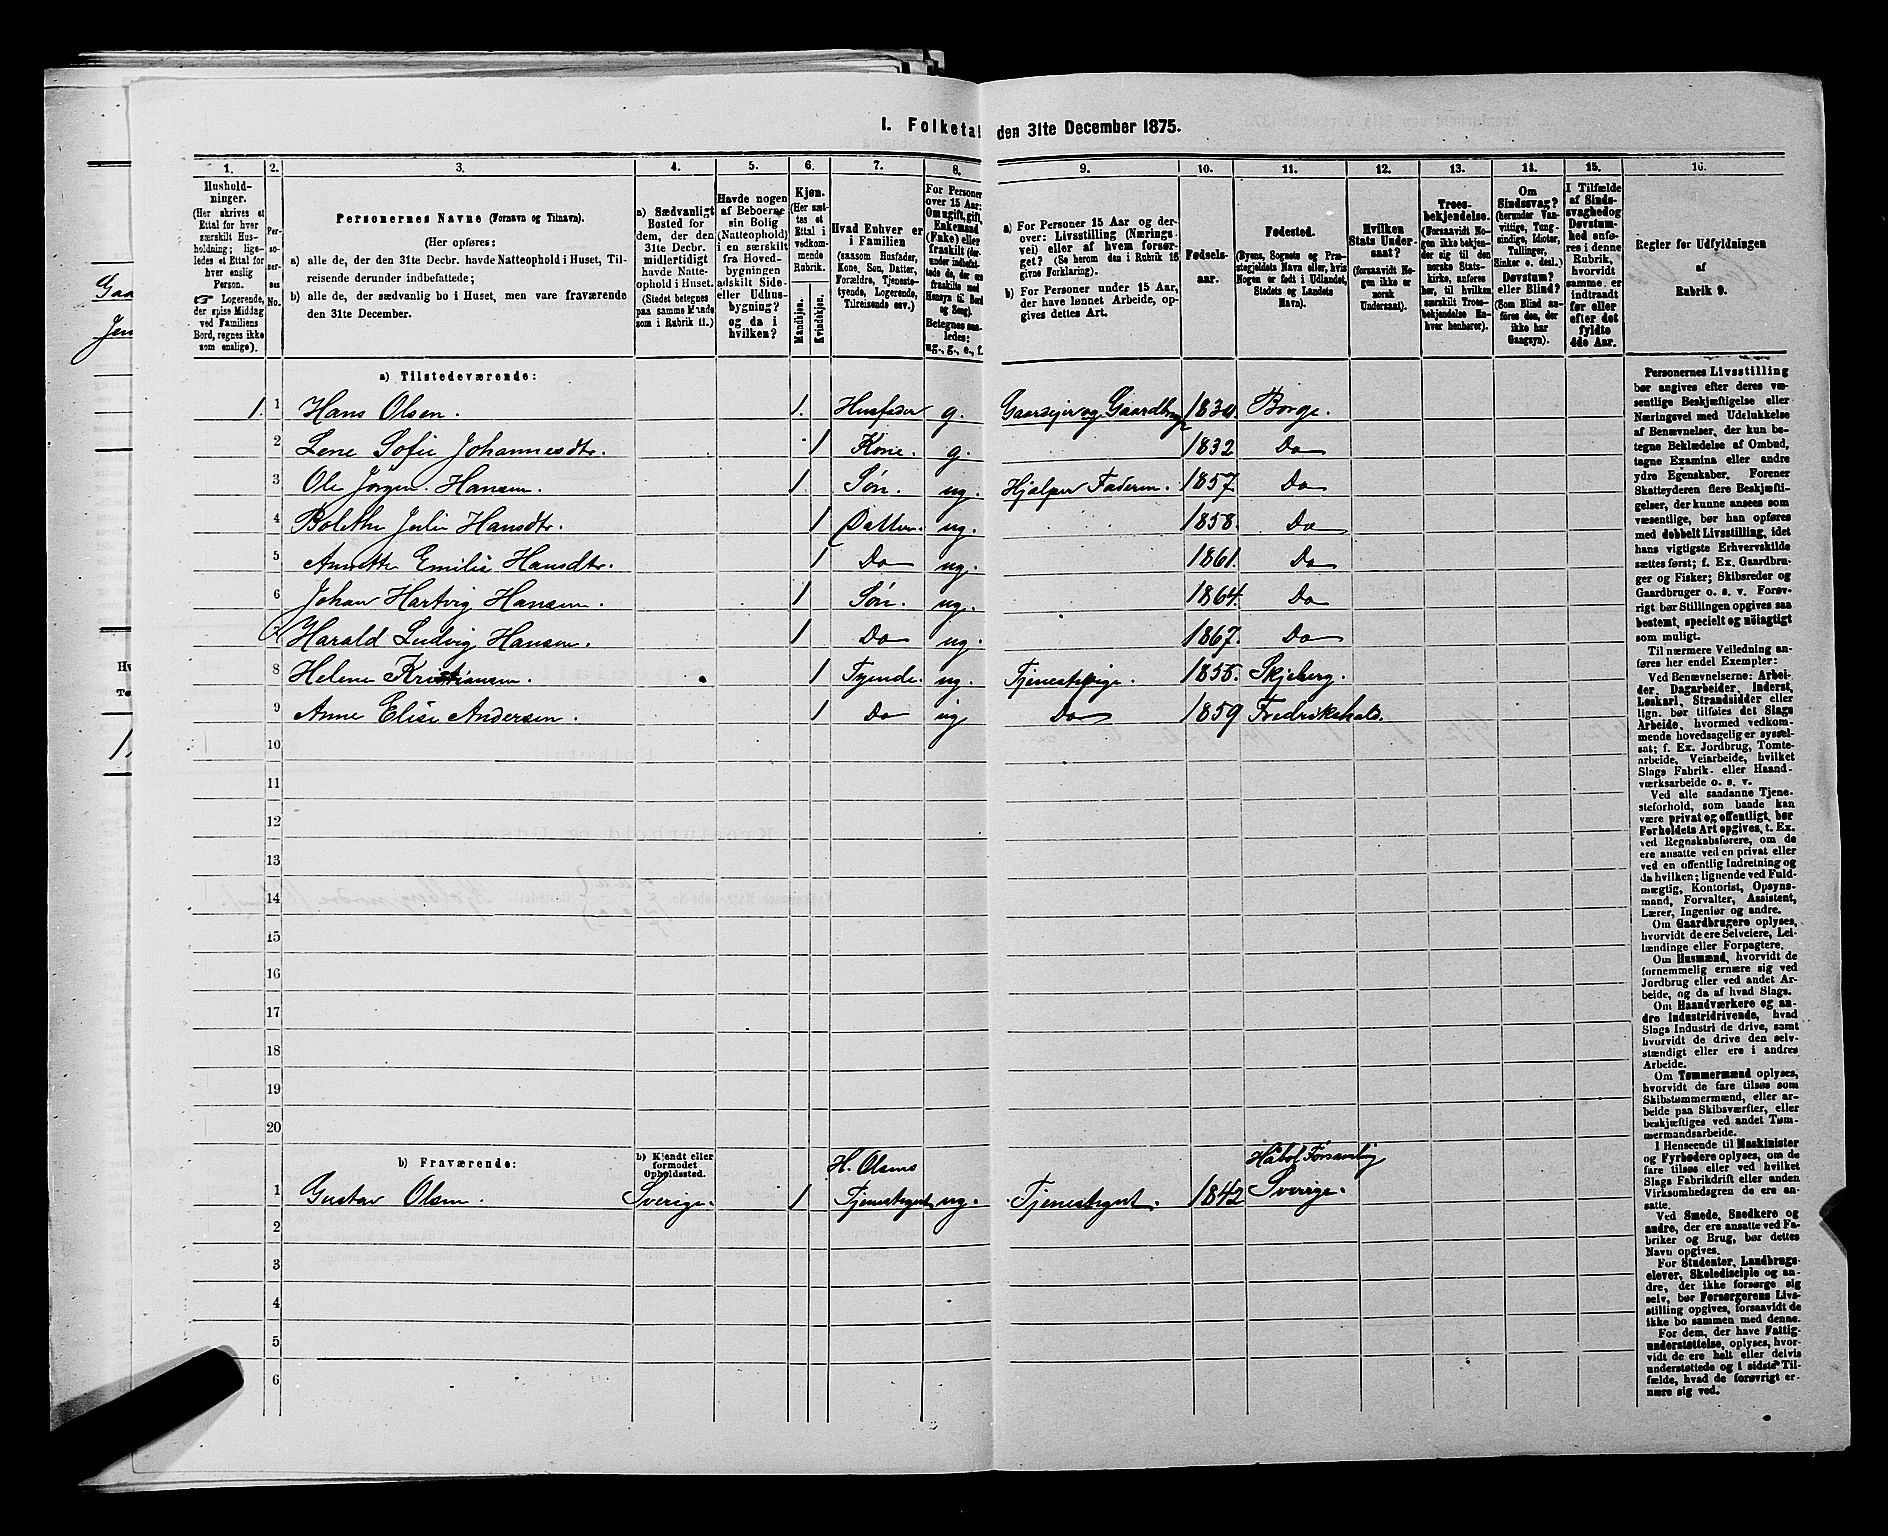 I. Folketal den 31te December 1875.
1. 2. 3. 4. 5. 6. 7. 8. 9. 10. 11. 12. 13. 14. 15. 16.
Hushold-
ninger.
(Her skrives et
Ettal for hver
særskilt Hus-
holdning; lige-
ledes et Ettal for
hver enslig
Person.
☞ Logerende,
der spise Middag
ved Familiens
Bord, regnes ikke
som enslige).
Per-
so-
ner-
nes
No.
Personernes Navne (Fornavn og Tilnavn).
(Her opføres:
a) alle de, der den 31te Decbr. havde Natteophold i Huset, Til-
reisende derunder indbefattede;
b) alle de, der sædvanlig bo i Huset, men vare fraværende
den 31te December.
a) Sædvanligt
Bosted for
dem, der den
31te Decbr.
midlertidigt
havde Natte-
ophold i Huset.
(Stedet betegnes
paa samme Maade
som i Rubrik 11.)
Havde nogen
af Beboerne
sin Bolig
(Natteophold)
i en særskilt
fra Hoved-
bygningen
adskilt Side-
eller Udhus-
bygning?
og da i
hvilken?
Kjøn.
(Her sæt-
tes et
Ettal i
vedkom-
mende
Rubrik.
Mandkjøn.
Kvindekjøn.
Hvad Enhver er
i Familien
(saasom Husfader,
Kone, Søn, Datter,
Forældre, Tjeneste-
tyende, Logerende,
Tilreisende osv.)
For Personer
over 15 Aar:
Om ugift, gift,
Enkemand
(Enke) eller
fraskilt
Betegnes saa-
ledes:
ug., g., e., f.
a) For Personer 15 Aar og der-
over: Livsstilling (Nærings-
vei) eller af hvem forsør-
get? (Se herom den i Rubrik 16
givne Forklaring).
b) For Personer under 15 Aar,
der have lønnet Arbeide, op-
gives dettes Art.
Fødsels-
aar.
Fødested.
(Byens, Sognets og Præ-
stegjeldets Navn eller, hvis
Nogen er født i Udlandet,
Stedets og Landets
Navn).
Hvilken
Stats Under-
saat?
(forsaavidt No-
gen ikke er
norsk
Undersaat).
Troes-
bekjendelse.
(Forsaavidt No-
gen ikke bekjen-
der sig til den
norske Stats-
kirke, anføres
her, til hvilken
særskilt Troes-
bekjendelse En-
hver henhører).
Om
Sindssvag?
(herunder Van-
vittige, Tung-
sindige, Idioter,
Tullinger,
Sinker o. desl.)
Døvstum?
eller Blind?
(Som Blind an-
føres den, der
ikke har
Gangsyn).
I Tilfælde
af Sinds-
svaghed og
Døvstum-
hed anfø-
res i denne
Rubrik,
hvorvidt
samme er
indtraadt
før eller
efter det
fyldte
4de Aar.
Regler for Udfyldningen
af
Rubrik 9.
a) Tilstedeværende:
1. 1 Hans Olsen. 1. Husfader g. Gaardejer og Gaardbruger 1834. Borge.
2 Lene Sofie Johannesdtr. 1 Kone. g. 1832 Do
3 Ole Jørgen Hansen. 1. Søn. ug. Hjælper Faderen. 1857. Do
4 Bolethe Julie Hansdtr. 1 Datter. ug. 1858. Do
5 Annette Emilie Hansdtr. 1 Do ug. 1861. Do
6 Johan Hartvig Hansen. 1 Søn. ug. 1864. Do
7 Harald Ludvig Hansen. 1 Do ug. 1867. Do
8 Helene Kristiansen. 1 Tyende. ug. Tjenestepige. 1855. Skjeberg.
9 Anne Elise Andersen. 1 Do ug Do 1859 Fredrikshald.
10
11
12
13
14
15
16
17
18
19
20
b) Fraværende:
b) Kjendt eller
formodet
Opholdssted.
H. Olsens Håbol Församling
1 Gustav Olsen. Sverige. 1 Tjenestegut ug. Tjenestegut. 1842 Sverige.
2
3
4
5
6
Personernes Livsstilling
bør angives efter deres væ-
sentlige Beskjæftigelse eller
Næringsvei med Udelukkelse
af Benævnelser, der kun be-
tegne Beklædelse af Ombud,
tagne Examina eller andre
ydre Egenskaber. Forener
Skatteyderen flere Beskjæfti-
gelser, der kunne ansees som
væsentlige, bør han opføres
med dobbelt Livsstilling, idet
hans vigtigste Erhvervskilde
sættes først; f. Ex. Gaardbru-
ger og Fisker; Skibsreder og
Gaardbruger o. s. v. Forøv-
rigt bør Stillingen opgives saa
bestemt, specielt og nøiagtigt
som muligt.
Til nærmere Veiledning an-
føres her endel Exempler:
Ved Benævnelserne: Arbei-
der, Dagarbeider, Inderst,
Løskarl, Strandsidder eller
lign. bør tilføies det Slags
Arbeide, hvormed vedkom-
mende hovedsagelig er syssel-
sat; f. Ex. Jordbrug, Tomte-
arbeide, Veiarbeide, hvilket
Slags Fabrik- eller Haand-
værksarbeide o. s. v.
Ved alle saadanne Tjene-
steforhold, som baade kan
være privat og offentligt, bør
Forholdets Art opgives, t. Ex.
ved Regnskabsførere, om de
ere ansatte ved en privat eller
ved en offentlig Indretning og
da hvilken; lignende ved Fuld-
mægtig, Kontorist, Opsyns-
mand, Forvalter, Assistent,
Lærer, Ingeniør og andre.
Om Gaardbrugere oplyses,
hvorvidt de ere Selveiere, Lei-
lændinge eller Forpagtere.
Om Husmænd, hvorvidt de
fornemmelig ernære sig ved
Jordbrug eller ved andet Ar-
beide, og da af hvad Slags.
Om Haandværkere og an-
dre Industridrivende, hvad
Slags Industri de drive, samt
hvorvidt de drive den selv-
stændigt eller ere i andres
Arbeide.
Om Tømmermænd oplyses,
hvorvidt de fare tilsøs som
Skibstømmermænd, eller ar-
beide paa Skibsværfter, eller
beskjæftiges ved andet Tøm-
mermandsarbeide.
I Henseende til Maskinister
og Fyrbødere oplyses, om de
fare tilsøs eller ved hvilket
Slags Fabrikdrift eller anden
Virksomhedsgren de ere an-
satte.
Ved Smede, Snedkere og
andre, der ere ansatte ved Fa-
briker og Brug, bør dettes
Navn opgives.
For Studenter, Landbrugs-
elever, Skoledisciple og an-
dre, der ikke forsørge sig
selv, bør Forsørgerens Livs-
stilling opgives, forsaavidt de
ikke bo sammen med denne.
For dem, der have Fattig-
understøttelse, oplyses, hvor-
vidt de ere helt eller delvis
understøttede og i sidste Til-
fælde, hvad de forøvrigt er-
nære sig ved.